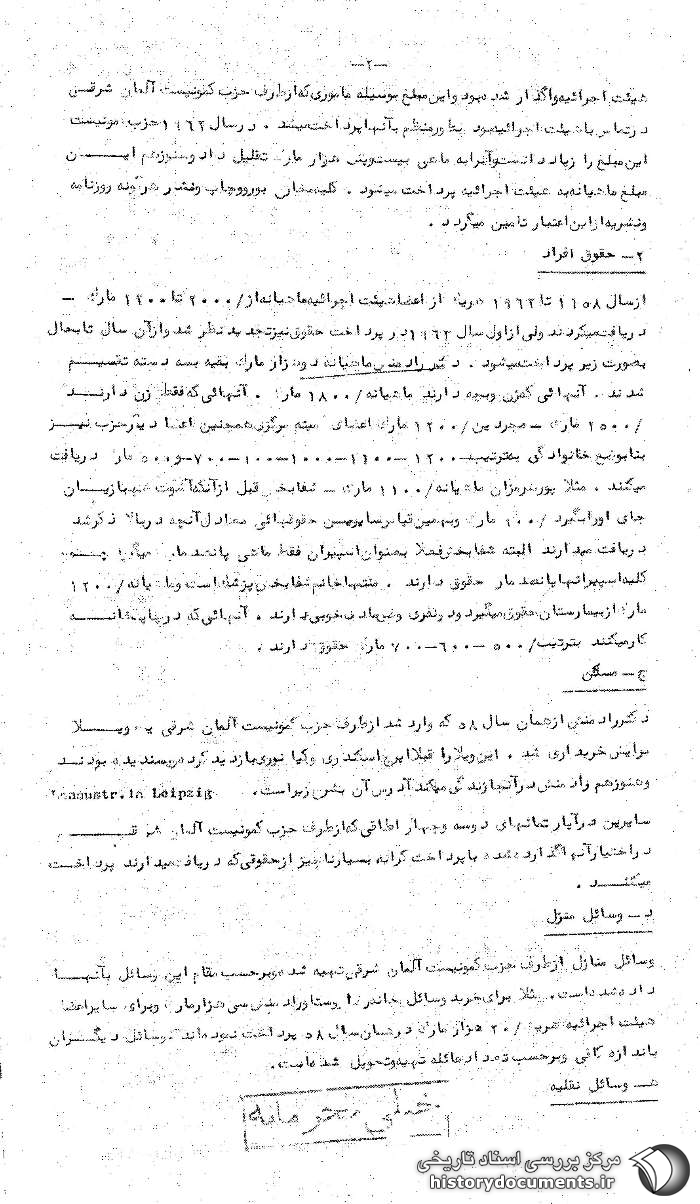 -۲-
هیئت اجرائیه واگذار شده بود و این مبلغ بوسیله ماموری که از طرف حزب کمونیست آلمان شرقی
در تماس با هیئت اجرائیه بود بطور منظم بآنها پرداخت میشد . در سال ۱۹۶۲ حزب
این مبلغ را زیاد دانست و آنرا به ماهی بیست و شش هزار مارک تقلیل داد و هنوز هم ایــن
مبلغ ماهیانه به هیئت اجرائیه پرداخت میشود . کلیه مخارج چاپ و نشر هرگونه روزنامه
ونشریه از این اعتبار تامین میگردد .
۲- حقوق افراد
از سال ۱۹۵۸ تا ۱۹۶۲ هریک از اعضا هیئت اجرائیه ماهیانه از /۲۰۰۰ تا ۱۲۰۰ مارک -
دریافت میکردند ولی از اول سال ۱۹۶۲ در پرداخت حقوق نیز تجدید نظر شد و از آن سال تا بحال
بصورت زیر پرداخت میشود . دکتر رادمنش ماهیانه دو هزار مارک بقیه بسه دسته تقسیم
شدند . آنهائی که زن و بچه دارند ماهیانه /۱۸۰۰ مارک . آنهائی که فقط زن دارنــد
/۲۵۰۰ مارک - مجردین /۱۲۰۰ مارک اعضای کمیته مرکزی همچنین اعضا دیگر حزب نیــز
بنا بوضع خانوادگی بترتیب ۱۲۰۰-۱۱۰۰-۱۰۰۰- -۷۰۰ و ۵۰۰ مارک دریافت
میکنند . مثلا پورهرمزان ماهیانه /۱۱۰۰ مارک - شفابخش قبل از آنکه
جای او را بگیرد مارک و بهمین قیاس سایرین حقوقهائی معادل آنچه در بالا ذکر شد
دریافت میدارند البته شفابخش فعلا بعنوان اسپیران فقط ماهی پانصد مارک میگیرد
کلیه اسپیرانها پانصد مارک حقوق دارند . منتها خانم شفابخش پزشک است و ماهیانه /۱۲۰۰
مارک از بیمارستان حقوق میگیرد و دو نفری وضع مادی خوبی دارند . آنهائی که در چاپخانــه
کار میکنند بترتیب /۵۰۰-۶۰۰-۷۰۰ مارک حقوق دارند .
ج - مسکن
دکتر رادمنش از همان سال ۵۸ که وارد شد از طرف حزب کمونیست آلمان شرقی یک ویــلا
برایش خریداری شد . این ویلا را قبلا ایرج اسکندری و کیا نوری بازدید کرده و پسندیده بودنــد
و هنوز هم رادمنش در آنجا زندگی میکند آدرس آن بشرح زیر است . in Leipzig
سایرین در آپارتمانهای دو سه و چهار اطاقی که از طرف حزب کمونیست آلمان شرقــی
در اختیار آنها گذارده شده با پرداخت کرایه بسیار ناچیز از حقوقی که دریافت میدارند پرداخــت
میکننــد .
د - وسائل منزل
وسائل منازل از طرف حزب کمونیست آلمان شرقی تهیه شده و بر حسب مقام این وسائل بآنهــا
داده شده است . مثلا برای خرید وسائل خانه رادمنش سی هزار مارک و برای سایر اعضا
هیئت اجرائیه هریک /۲۰ هزار مارک در همان سال ۵۸ پرداخت نموده اند . وسائل دیگــران
باندازه کافی و بر حسب تعداد عائله تهیه و تحویل شده است .
هـ - وسائل نقلیه
خیلی محرمانه
مرکز بررسی اسناد تاریخی
historydocuments.ir